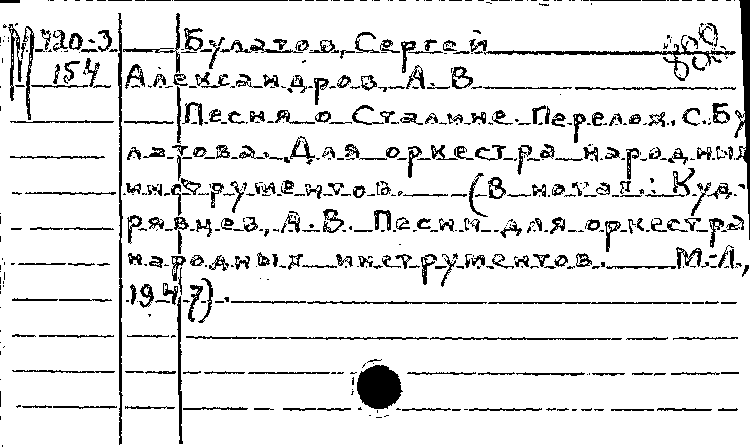 М 720-3 Булатов, Сергей
154 Александров, А. В
Песня о Сталине. Перелож. С. Бу
латова. Для оркестра народных
инструментов. (В нотах.: Куд-
рявцев, А. В. Песни для оркестра
народных инструментов. М.-Л.,
1947).